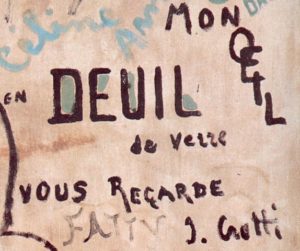 Céline
MON OEIL
EN DEUIL
de verre
VOUS REGARDE
FATTY J. Crotti